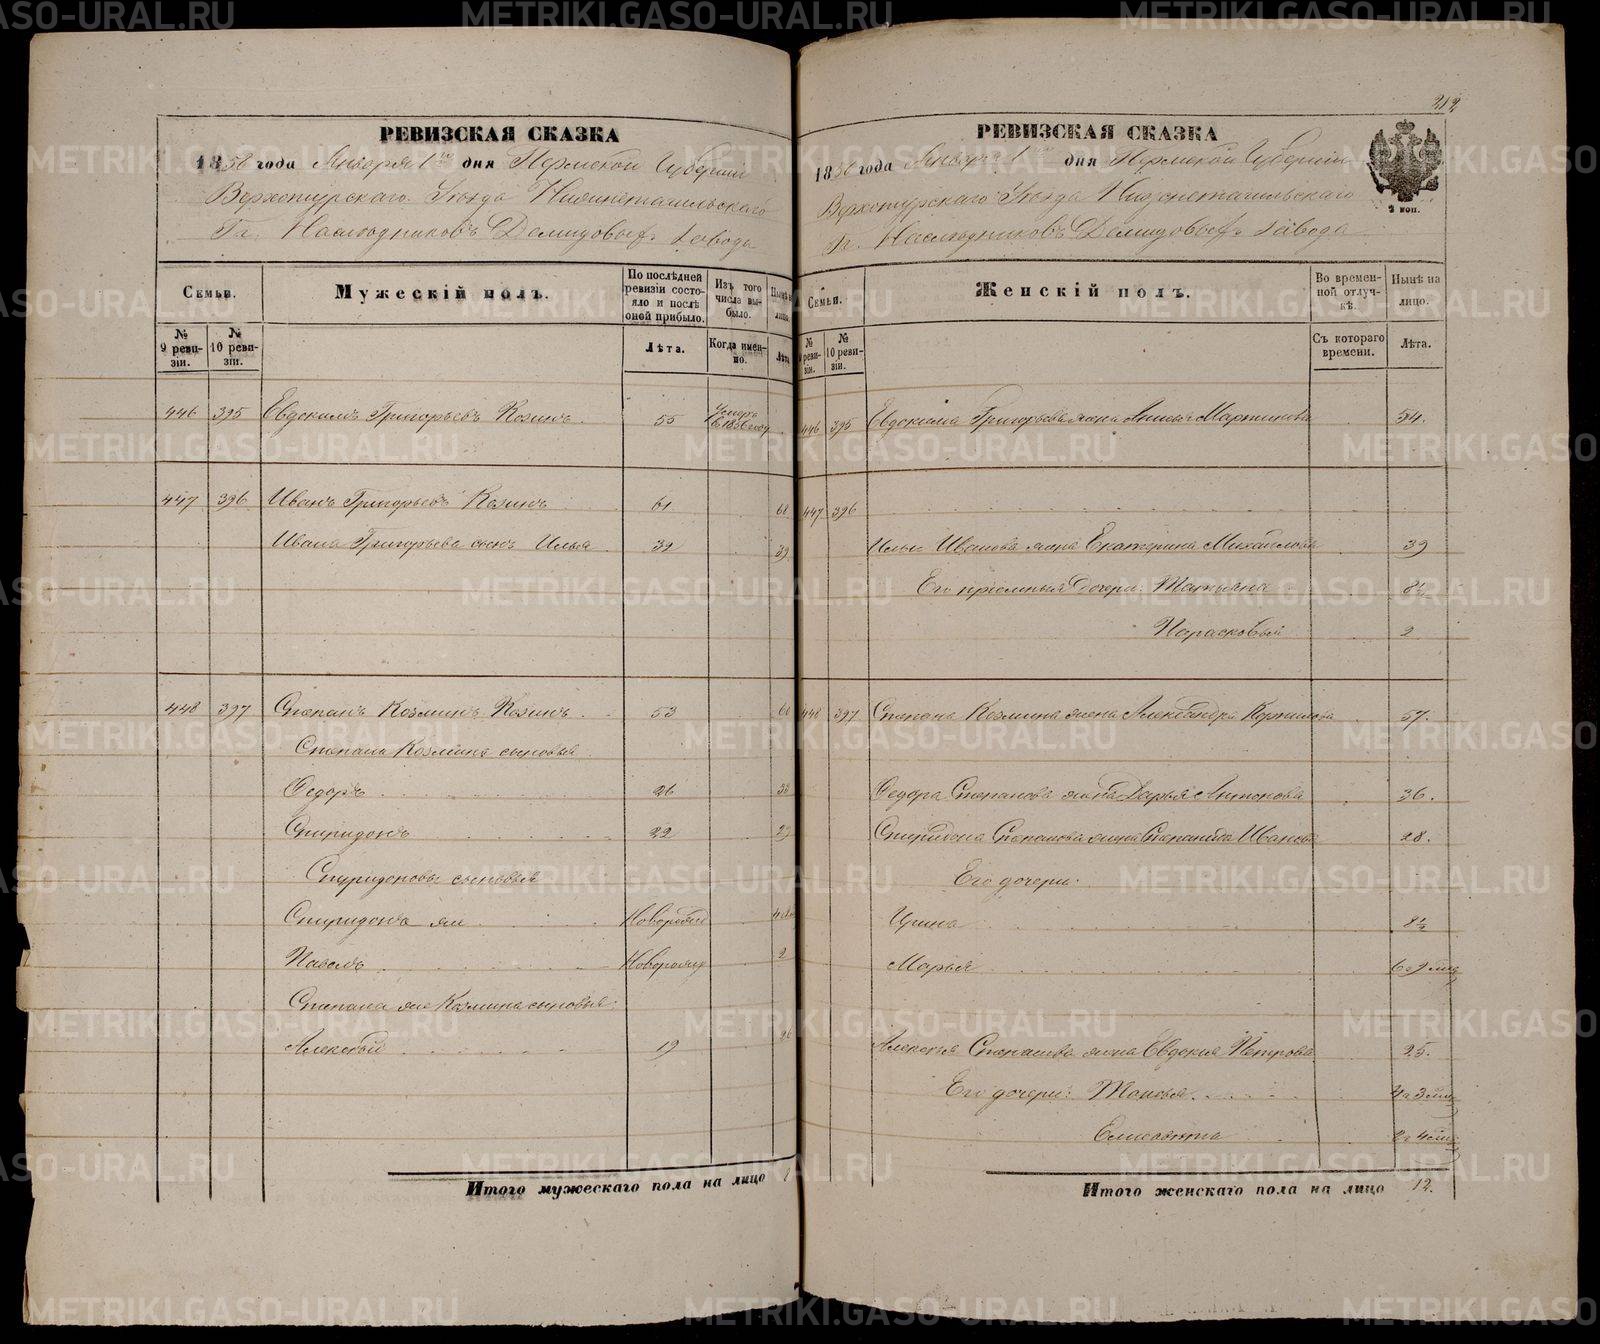 212
РЕВИЗСКАЯ СКАЗКА
1858 года Января 1го дня Пермской Губернии
Верхотурскаго Уезда Нижнетагильскаго
Гг. Наследниковъ Демидовыхъ завода
Семьи.
№ 9 ревизіи.
№ 10 ревизіи.
Мужескій полъ.
По послѣдней ревизіи состояло и послѣ оной прибыло.
Лѣта.
Изъ того числа выбыло.
Когда именно.
446 395 Евдокимъ Григорьевъ Козинъ 55 Умеръ в 1856 году
447 396 Иванъ Григорьевъ Козинъ 61 68
Ивана Григорьева сынъ Илья 32 39
448 397 Степанъ Козминъ Козинъ 53 60
Степана Козмина сыновья
Федоръ 26
Спиридонъ 22 29
Спиридоновы сыновья
Спиридонъ же
Павелъ 2
Степана же Козмина сыновья:
Алексѣй 19 26
Итого мужескаго пола на лицо
РЕВИЗСКАЯ СКАЗКА
1858 года Января 1го дня Пермской Губерніи
2 коп.
Верхотурскаго Уезда Нижнетагильскаго
Гг. Наследниковъ Демидовыхъ завода
Семьи.
№ 10 ревизіи.
Женскій полъ.
Во временной отлучкѣ.
Съ котораго времени.
Нынѣ на лицо.
Лѣта.
446 395 Евдокима Григорьева жена Мартинова 54.
447 396
Ильи Иванова жена Екатерина Михайлова 39
Его пріемныя дочери: Татьяна 8½
Парасковья 2
448 397 Степана Козмина жена Александра Корнилова 57.
Федора Степанова жена Дарья Антонова 36.
Спиридона Степанова жена Степанида Иванова 28.
Его дочери:
Ирина 8½
Марья
Алексѣя Степанова жена Евдокия Петрова 25.
Его дочери:
Елисавета
Итого женскаго пола на лицо 12.
METRIKI.GASO-URAL.RU